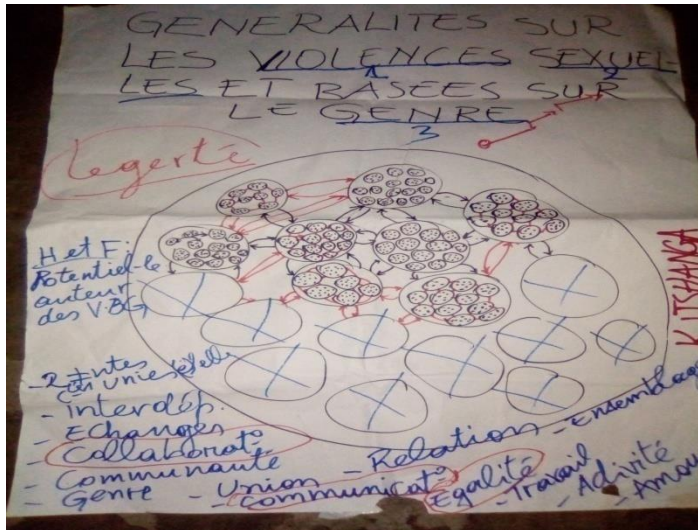 GENERALITES SUR
LES VIOLENCES SEXUEL-
LES ET BASEES SUR
LE GENRE
1
2
3
Legerté
KITSHANGA
H et F:
Potentiel-le
auteur
des VBG
- Interdép.
- Echanges
- Collaborat°
- Communauté
- Genre
- Union
- Communicat°
- Relation
Egalité
- Ensemble
- Travail
- Activité
- Amou